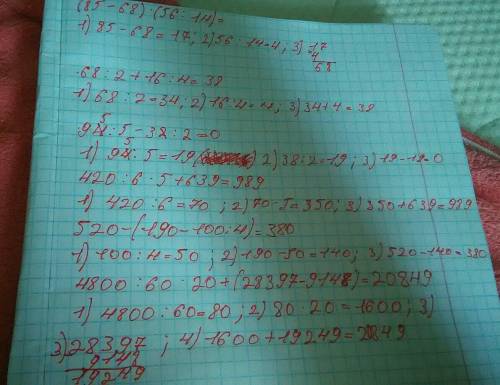 (85-68)·(56:14)=
1) 85-68=17; 2) 56:14=4; 3) 17
4
68
68:2+16:4=38
1) 68:2=34; 2) 16:4=4; 3) 34+4=38
95:5-38:2=0
1) 95:5=19 2) 38:2=19; 3) 19-19=0
420:6·5+639=989
1) 420:6=70; 2) 70·5=350; 3) 350+639=989
520-(190-100:4)=380
1) 100:4=50; 2) 190-50=140; 3) 520-140=380
4800:60·20+(28397-9148)=20849
1) 4800:60=80; 2) 80·20=1600; 3)
3) 28397; 4) 1600+19249=20849
9148
19249